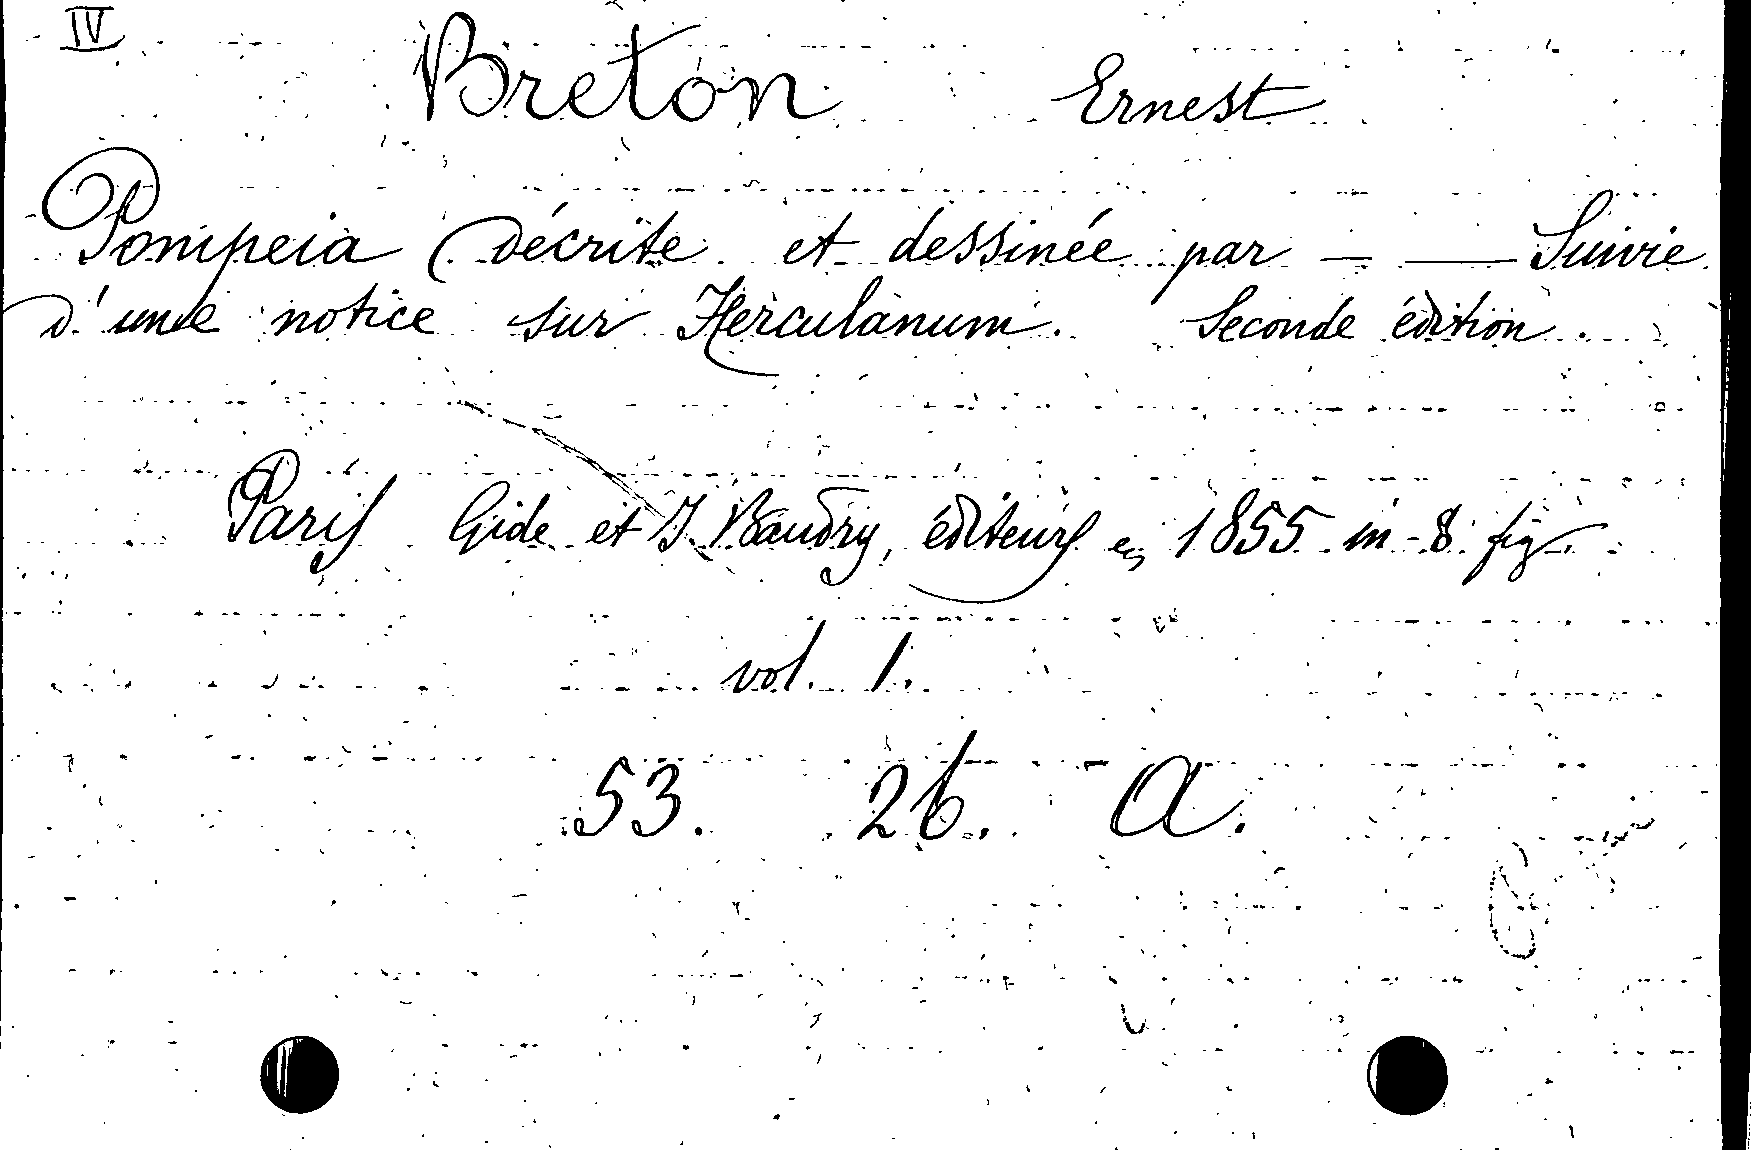 IV
Breton Ernest
Pompeia décrite et dessinée par — — Suivie
d'une notice sur Herculanum. Seconde édition.
Paris Gide et J. Baudry, éditeurs 1855 in-8 fig.
vol. 1.
53. 26. A.